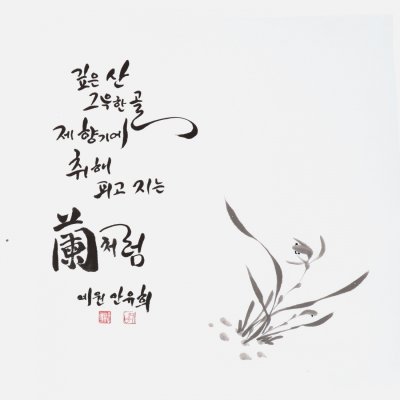 깊은 산
그윽한 골
제 향기에
취해
피고 지는
蘭처럼
예원 안유희